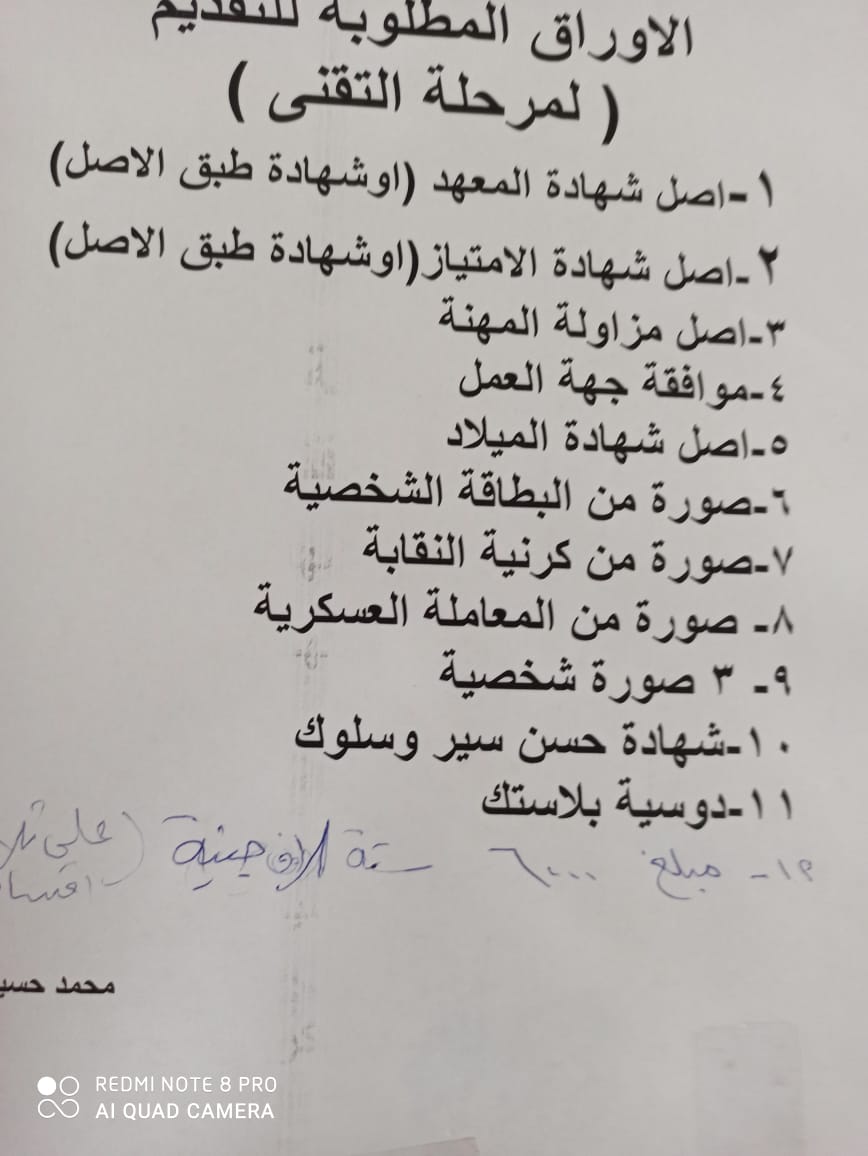 الاوراق المطلوبة للتقديم
( لمرحلة التقنى )
١-اصل شهادة المعهد (اوشهادة طبق الاصل)
٢-اصل شهادة الامتياز(اوشهادة طبق الاصل)
٣-اصل مزاولة المهنة
٤-موافقة جهة العمل
٥-اصل شهادة الميلاد
٦-صورة من البطاقة الشخصية
٧-صورة من كرنية النقابة
٨- صورة من المعاملة العسكرية
٩- ٣ صورة شخصية
١٠-شهادة حسن سير وسلوك
١١-دوسية بلاستك
١٢- مبلغ ٦٠٠٠ ستة الاف جنية (على
محمد
REDMI NOTE 8 PRO
AI QUAD CAMERA